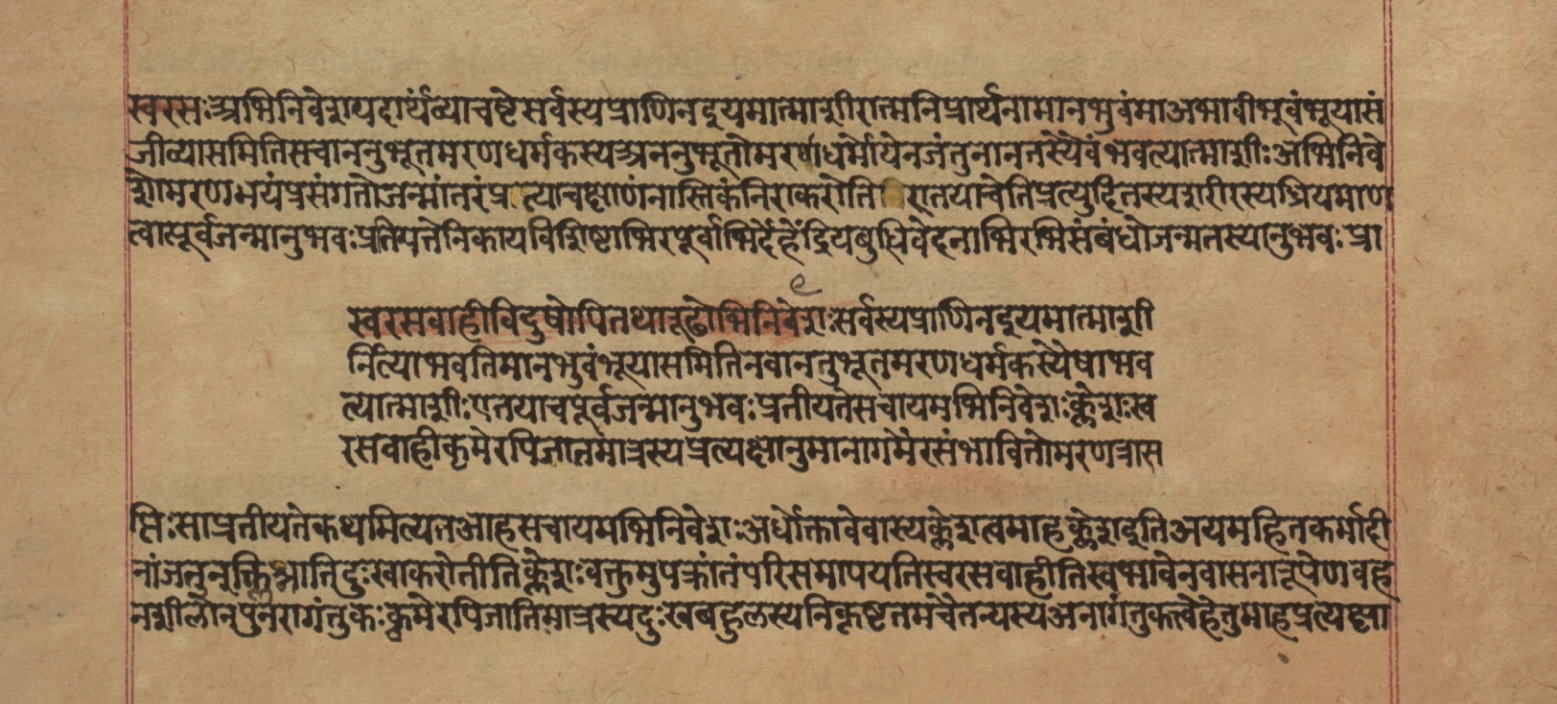 स्वरसःअभिनिवेशपदार्थंव्याचष्टेसर्वस्यप्राणिनइयमात्माशीरात्मनिप्रार्थनामानभुवंमाअभावीभूवंभूयासं
जीव्यासमितिसचाननुभूतमरणधर्मकस्यअननुभूतोमरणधर्मोयेनजंतुनानतस्यैवंभवत्यात्माशीःअभिनिवे
शोमरणभयंप्रसंगतोजन्मांतरंप्रत्याचक्षाणंनास्तिकंनिराकरोति एतयाचेतिप्रत्युदितस्यशरीरस्यध्रियमाण
त्वात्पूर्वजन्मानुभवःप्रतीयत्तेनिकायविशिष्टाभिरपूर्वाभिर्देहेंद्रियबुधिवेदनाभिरभिसंबंधोजन्मतस्यानुभवःप्रा
स्वरसवाहीविदुषोपितथारूढोभिनिवेशःसर्वस्यप्राणिनइयमात्माशी
र्नित्याभवतिमानभुवंभूयासमितिनवाननुभूतमरणधर्मकस्यैषाभव
त्यात्माशीःएतयाचपूर्वजन्मानुभवःप्रतीयतेसचायमभिनिवेशःक्लेशःस्व
रसवाहीकृमेरपिजातमात्रस्यप्रत्यक्षानुमानागमैरसंभावितोमरणत्रास
प्तिःसाप्रतीयतेकथमित्यतआहसचायमभिनिवेशःअर्धोक्तावेवास्यक्लेशत्वमाहक्लेशइतिअयमहितकर्माही
नांजतुन्क्लिश्नातिदुःखाकरोतीतिक्लेशःवक्तुमुपक्रांतंपरिसमापयतिस्वरसवाहीतिस्वभावेनवासनारूपेणवह
नशीलोनपुनरागंतुकःकृमेरपिजातिमात्रस्यदुःखबहुलस्यनिकृष्टतमचैतन्यस्यअनागंतुकत्वेहेतुमाहप्रत्यक्षा